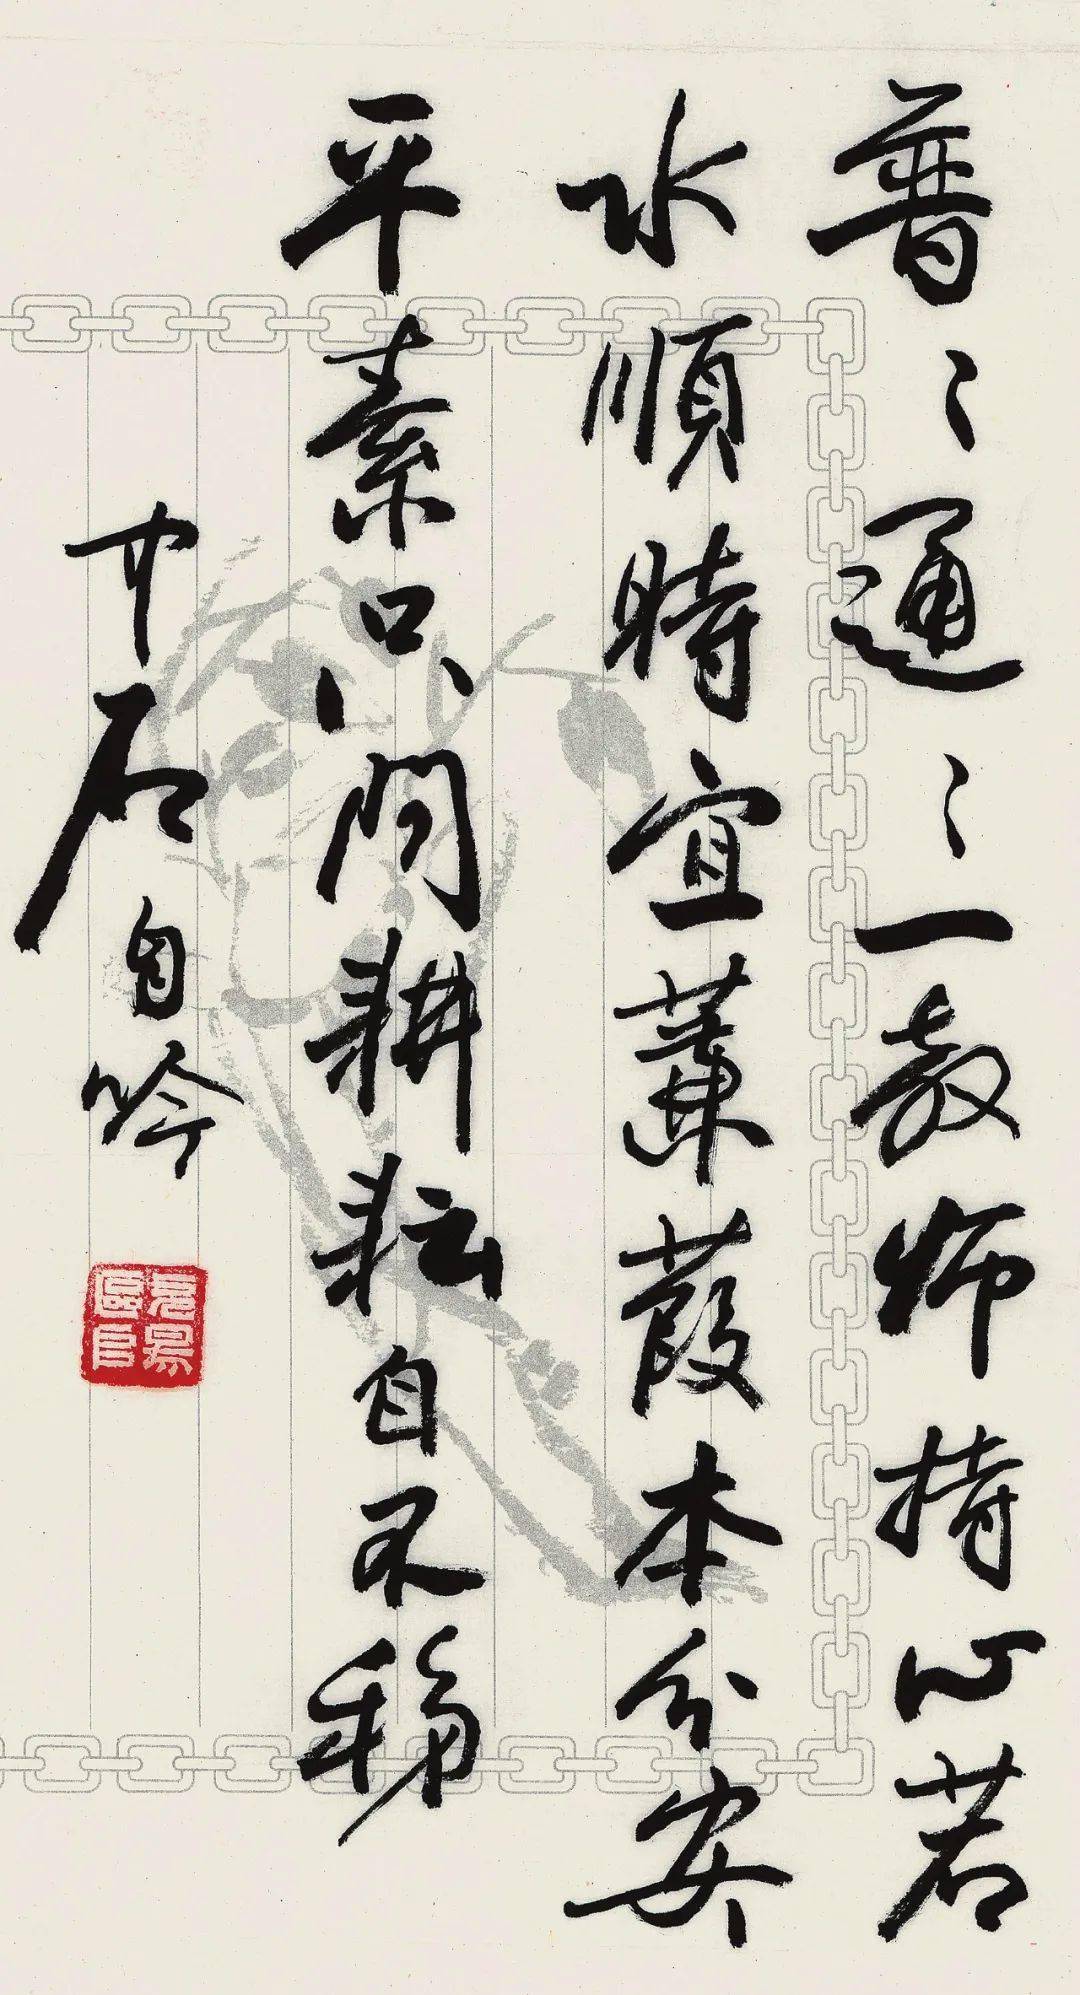 普〻通〻一教師持心若
水順時宜蒹葭本分安
平素只問耕耘自不移
中石自吟